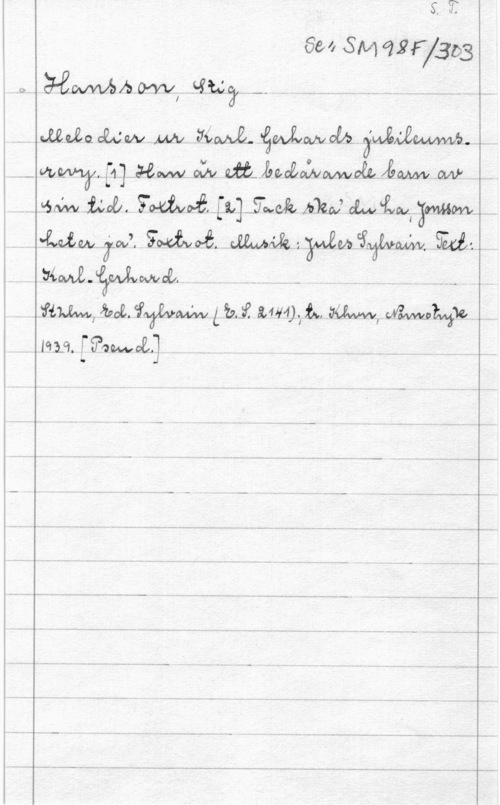 S. T.
Se: SM98F/303
Hansson, Stig
Melodier ur Karl-Gerhards jubileums-
revy. [1] Han är ett bedårande barn av
sin tid. Foxtrot. [2] Tack ska' du ha, Jonsson
heter ja'. Foxtrot. Musik: Jules Sylvain. Text:
Karl-Gerhard.
Sthlm, Ed. Sylvain (E.S. 2141); tr. Khvn, Nornotryk
1939. [Pseud.]